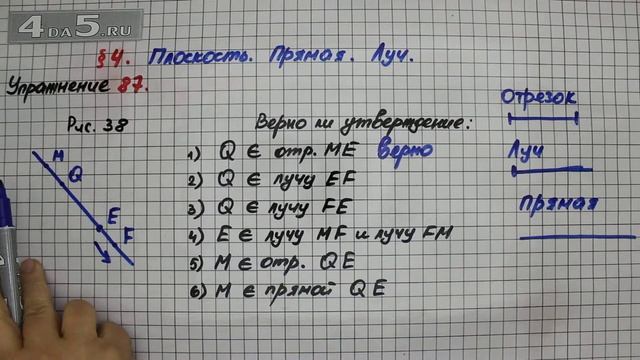 4DA5.RU
§4. Плоскость. Прямая. Луч.
Упражнение 87.
Рис. 38
M
Q
E
F
Верно ли утверждение:
1) Q ∈ отр. ME верно
2) Q ∈ лучу EF
3) Q ∈ лучу FE
4) E ∈ лучу MF и лучу FM
5) M ∈ отр. QE
6) M ∈ прямой QE
Отрезок
Луч
Прямая